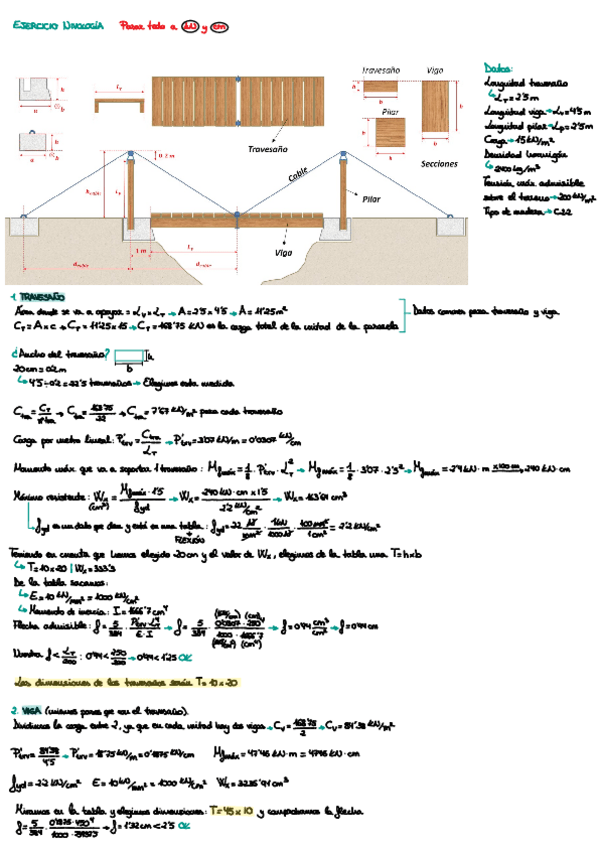 EJERCICIO NIVOLOGÍA Pasar todo a kN y cm
Travesaño Viga
Pilar
Secciones
Travesaño
0.2 m
Cable
Pilar
Viga
1 m
Datos:
Longitud travesaño
↳ L_T = 2'5 m
Longitud viga → L_v = 4'5 m
Longitud pilar → L_p = 2'5 m
Carga → 15 kN/m²
Densidad hormigón
↳ 2400 kg/m³
Tensión máx admisible
sobre el terreno → 200 kN/m²
Tipo de madera → C22
1. TRAVESAÑO
Área donde se va a apoyar = L_v × L_T → A = 2'5 × 4'5 → A = 11'25 m²
C_T = A × c → C_T = 11'25 × 15 → C_T = 168'75 kN es la carga total de la mitad de la pasarela
Datos comunes para travesaño y viga
¿Ancho del travesaño? h b
20 cm = 0'2 m
↳ 4'5 ÷ 0'2 = 22'5 travesaños → Elegimos esta medida
C_tra = C_T / nº tra → C_tra = 168'75 / 22 → C_tra = 7'67 kN/m² para cada travesaño
Carga por metro lineal: P'trv = C_tra / L_T → P'trv = 3'07 kN/m = 0'0307 kN/cm
Momento máx que va a soportar 1 travesaño: Mf máx = 1/8 · P'trv · L_T² → Mf máx = 1/8 · 3'07 · 2'5² → Mf máx = 2'4 kN · m x100 cm → 240 kN · cm
Máximo resistente: W_x (cm³) = Mf máx · 1'5 / fyd → W_x = 240 kN · cm × 1'5 / 2'2 kN/cm² → W_x = 163'64 cm³
fyd es un dato que dan y está en una tabla: fyd = 22 N/mm² · 1 kN/1000 N · 100 mm²/1 cm² = 2'2 kN/cm²
FLEXIÓN
Teniendo en cuenta que hemos elegido 20 cm y el valor de W_x, elegimos de la tabla una T = h×b
↳ T = 10 × 20 | W_x = 333'3
De la tabla sacamos:
↳ E = 10 kN/mm² = 1000 kN/cm²
↳ Momento de inercia: I = 1666'7 cm⁴
Flecha admisible: f = 5/384 · P'trv · L⁴ / E · I → f = 5/384 · 0'0307 · 250⁴ / 1000 · 1666'7 → f = 0'94 → f = 0'94 cm
Nuestra f < L_T/200 : 0'94 < 250/200 → 0'94 < 1'25 OK
Las dimensiones de los travesaños serán T = 10 × 20
2. VIGA (mismos pasos que con el travesaño).
Dividimos la carga entre 2, ya que en cada mitad hay dos vigas → C_v = 168'75 / 2 → C_v = 84'38 kN/m²
P'trv = 84'38 / 4'5 → P'trv = 18'75 kN/m = 0'1875 kN/cm Mf máx = 47'46 kN · m = 4746 kN · cm
fyd = 2'2 kN/cm² E = 10 kN/mm² = 1000 kN/cm² W_x = 3235'91 cm³
Miramos en la tabla y elegimos dimensiones: T = 45 × 10 y comprobamos la flecha
→ f = 1'32 cm < 2'5 OK